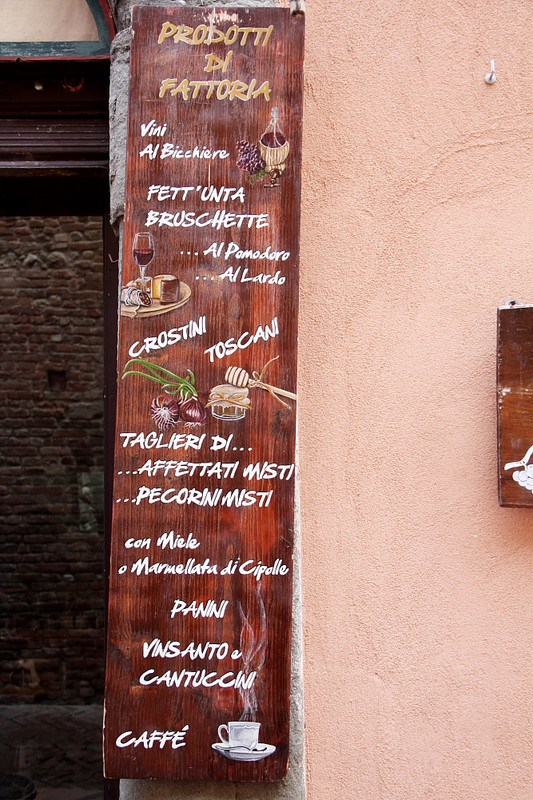 PRODOTTI
DI
FATTORIA
Vini
Al Bicchiere
FETT'UNTA
BRUSCHETTE
...Al Pomodoro
...Al Lardo
CROSTINI TOSCANI
TAGLIERI DI...
...AFFETTATI MISTI
...PECORINI MISTI
con Miele
o Marmellata di Cipolle
PANINI
VINSANTO e
CANTUCCINI
CAFFÉ